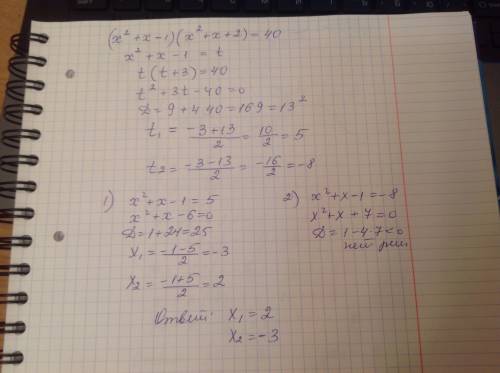 (x² + x - 1)(x² + x + 2) = 40
x² + x - 1 = t
t(t + 3) = 40
t² + 3t - 40 = 0
D = 9 + 4·40 = 169 = 13²
t₁ = (-3+13)/2 = 10/2 = 5
t₂ = (-3-13)/2 = -16/2 = -8
1) x² + x - 1 = 5
x² + x - 6 = 0
D = 1 + 24 = 25
x₁ = (-1-5)/2 = -3
x₂ = (-1+5)/2 = 2
2) x² + x - 1 = -8
x² + x + 7 = 0
D = 1 - 4·7 < 0
нет реш
Ответ: x₁ = 2
x₂ = -3